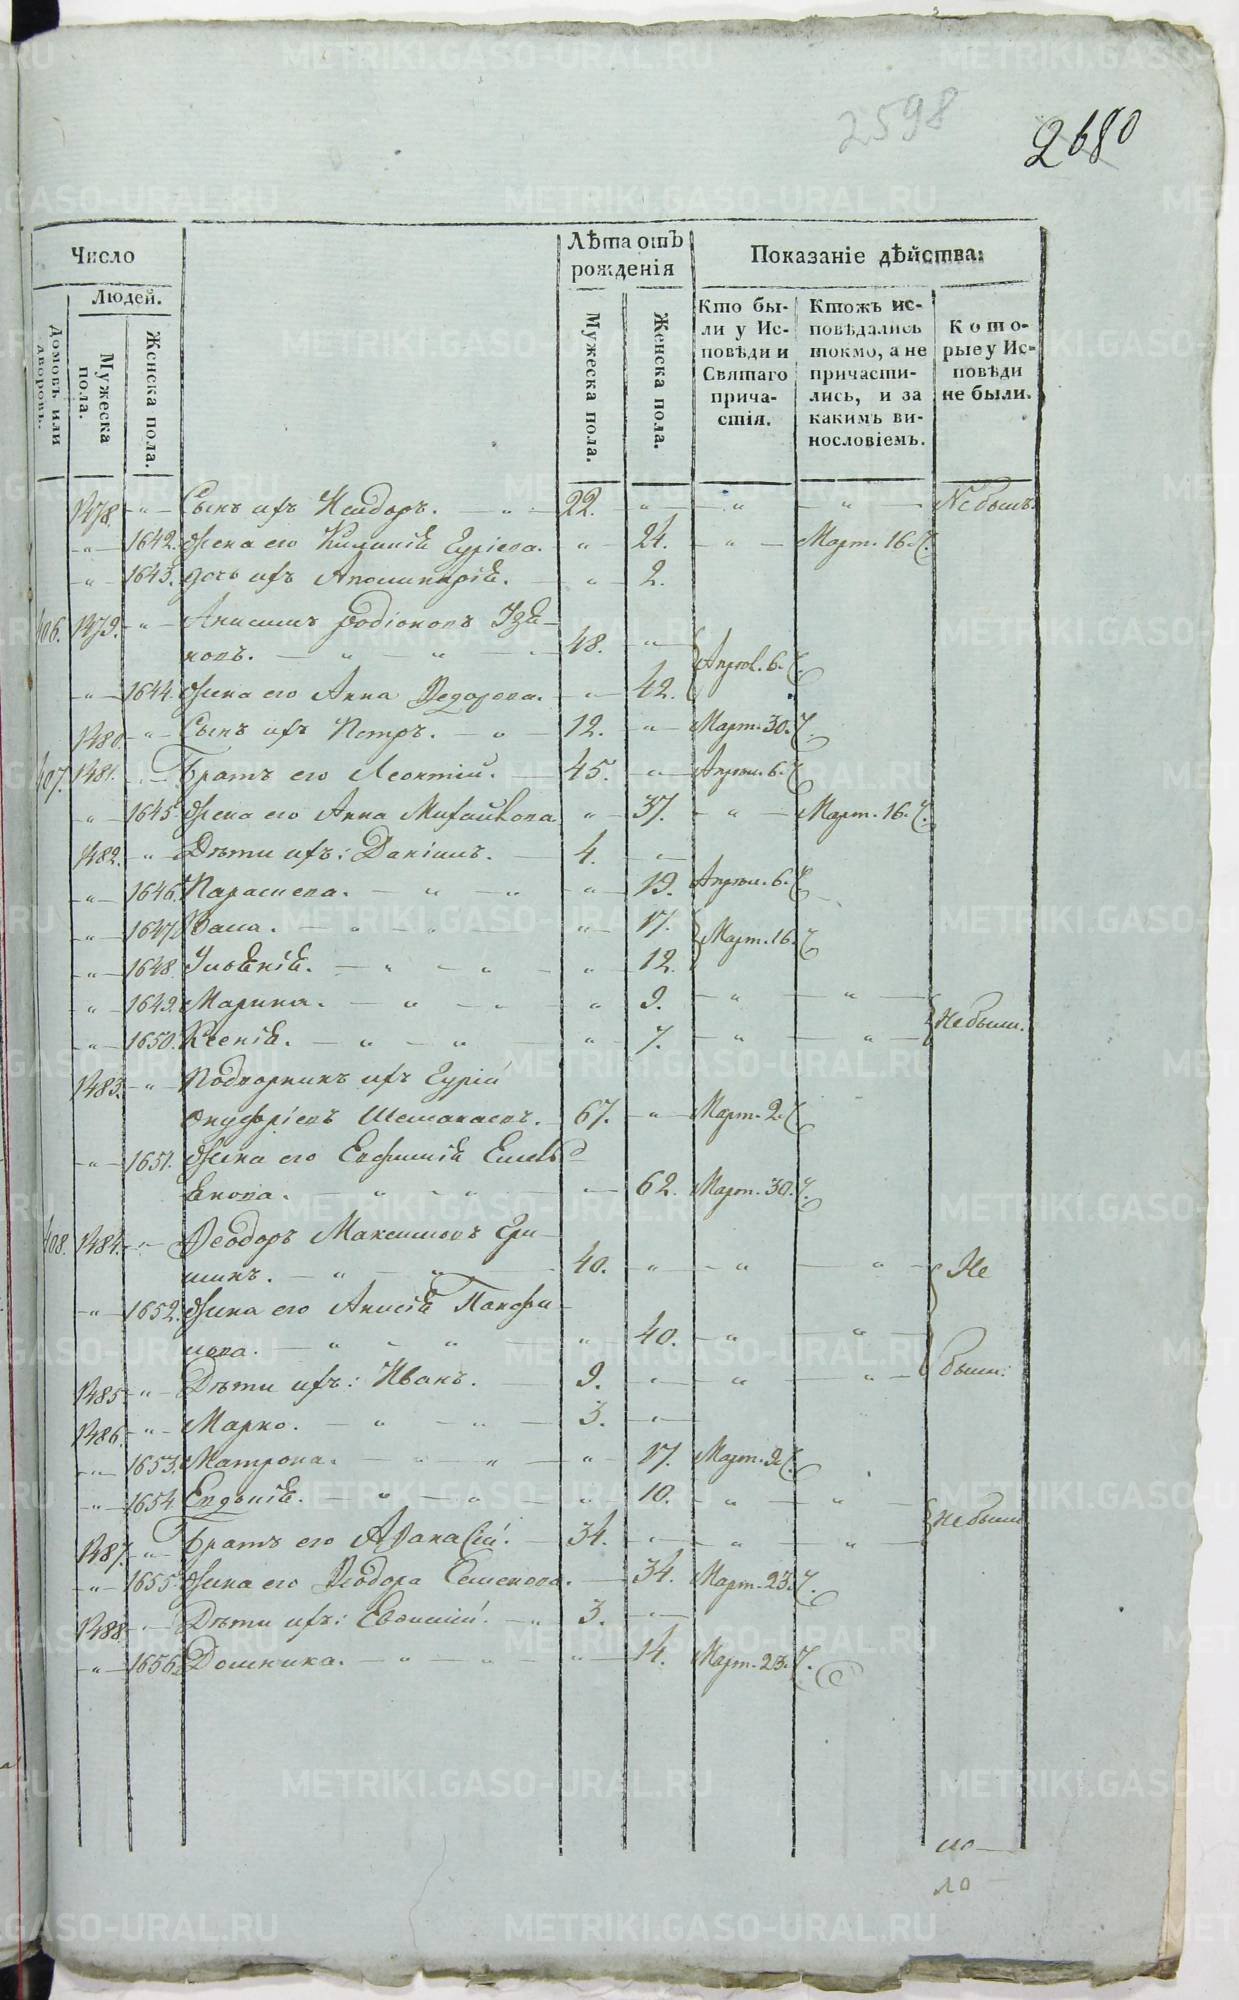 2598
2680
Число
Людей.
Домовъ или дворовъ.
Мужеска пола.
Женска пола.
Лѣта отъ рожденія
Мужеска пола.
Женска пола.
Показаніе дѣйства:
Кто бы-
ли у Ис-
повѣди и
Святаго
прича-
стія.
Ктожъ ис-
повѣдались
токмо, а не
причасти-
лись, и за
какимъ ви-
нословіемъ.
Кото-
рые у Ис-
повѣди
не были.
1478. -"- Сынъ ихъ Исидоръ. - " - 22. - " - " - " - Не былъ.
-"- 1642. Жена его Гуріева. - " - 24. - " - Март. 16. Ч.
-"- 1643. дочь ихъ Аполинарія. - " - 2.
406. 1479. -"- Анисимъ Родіоновъ Изѣ-
ковъ. - " - " - 48. - " - Апрѣл. 6. Ч.
-"- 1644. Жена его Анна Ѳедорова. - " - 42.
1480. -"- Сынъ ихъ Петръ. - " - 12. - " - Март. 30. Ч.
407. 1481. - Братъ его Леонтій. - 45. - " - Апрѣл. 6. Ч.
-"- 1645. Жена его Анна Михайлова - " - 37. - " - Март. 16. Ч.
1482. -"- Дѣти ихъ: Даніилъ. - 4. - " -
-"- 1646. Параскева. - " - " - " - 19. Апрѣл. 6. Ч.
-"- 1647. Васа. - " - " - " - 17. Март. 16. Ч.
-"- 1648. Ульянія. - " - " - " - 12.
-"- 1649. Марина. - " - " - " - 9. - " - " - Не были.
-"- 1650. Ксенія. - " - " - " - 7. - " - " -
1483. -"- Подворникъ ихъ Гурій
Онуфріевъ - 67. - " - Март. 2. Ч.
-"- 1651. Жена его Евфимія Емель-
янова. - " - " - 62. Март. 30. Ч.
408. 1484. - Ѳеодоръ Максимовъ Гри-
шинъ. - " - " - 40. - " - " - " - Не
-"- 1652. Жена его Анисія Панфи-
лова. - " - " - " - 40. - " - " -
были.
1485. -"- Дѣти ихъ: Иванъ. 9. - " - " - " -
1486. -"- Марко. - " - " - 3. - " -
-"- 1653. Матрона. - " - " - " - 17. Март. 2. Ч.
-"- 1654. Евдокія. - " - " - " - 10. - " - " - Не были
1487. -"- Братъ его Аѳанасій. - 34. - " - " - " -
-"- 1655. Жена его Ѳеодора Семенова. - 34. Март. 23. Ч.
1488. - Дѣти ихъ: - " - 3. - " -
-"- 1656. Домника. - " - " - " - 14. Март. 23. Ч.
METRIKI.GASO-URAL.RU